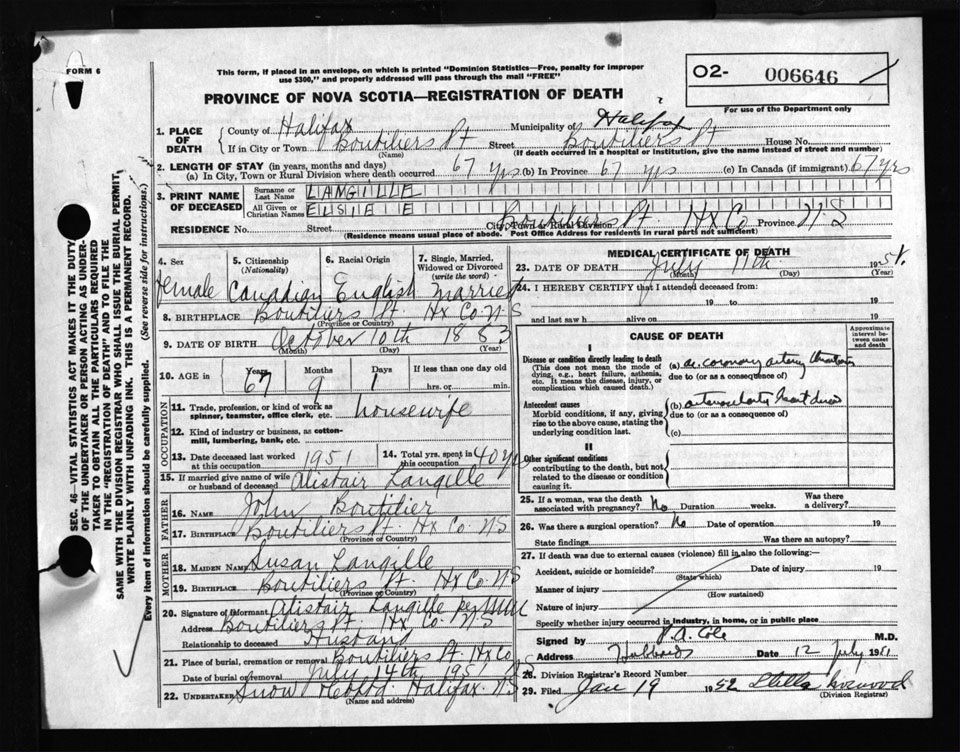 FORM 6
This form, if placed in an envelope, on which is printed "Dominion Statistics—Free, penalty for improper
use $300," and properly addressed will pass through the mail "FREE"
PROVINCE OF NOVA SCOTIA—REGISTRATION OF DEATH
O2- 006646
For use of the Department only
1. PLACE OF DEATH
County of Halifax Municipality of Halifax
If in City or Town Boutiliers Pt Street Boutiliers Pt House No.
(Name) (If death occurred in a hospital or institution, give the name instead of street and number)
2. LENGTH OF STAY (in years, months and days)
(a) In City, Town or Rural Division where death occurred 67 yrs (b) In Province 67 yrs (c) In Canada (if immigrant) 67 yrs
3. PRINT NAME OF DECEASED
Surname or Last Name LANGILLE
All Given or Christian Names ELSIE E
RESIDENCE No. Street City, Town or Rural Division Boutiliers Pt. Hx Co Province N S
(Residence means usual place of abode. Post Office Address for residents in rural parts not sufficient)
4. Sex female
5. Citizenship (Nationality) Canadian
6. Racial Origin English
7. Single, Married, Widowed or Divorced (write the word) Married
8. BIRTHPLACE Boutiliers Pt. Hx Co. N S
(Province or Country)
9. DATE OF BIRTH October 10th 1883
(Month) (Day) (Year)
10. AGE in Years 67 Months 9 Days 1 If less than one day old hrs. or min.
OCCUPATION
11. Trade, profession, or kind of work as spinner, teamster, office clerk, etc. housewife
12. Kind of industry or business, as cotton-mill, lumbering, bank, etc.
13. Date deceased last worked at this occupation 1951
14. Total yrs. spent in this occupation 40 yrs
15. If married give name of wife or husband of deceased Alistair Langille
FATHER
16. NAME John Boutilier
17. BIRTHPLACE Boutiliers Pt. Hx Co. N S
(Province or Country)
MOTHER
18. MAIDEN NAME Susan Langille
19. BIRTHPLACE Boutiliers Pt. Hx Co. N S
(Province or Country)
20. Signature of Informant Alistair Langille per
Address Boutiliers Pt. Hx Co. N S
Relationship to deceased Husband
21. Place of burial, cremation or removal Boutiliers Pt. Hx Co
Date of burial or removal July 14th 1951 N S
22. UNDERTAKER Snow Halifax. N S
(Name and address)
MEDICAL CERTIFICATE OF DEATH
23. DATE OF DEATH July 11th 1951.
(Month) (Day) (Year)
24. I HEREBY CERTIFY that I attended deceased from:
19 to 19
and last saw h alive on 19
CAUSE OF DEATH
Approximate interval between onset and death
I
Disease or condition directly leading to death
(This does not mean the mode of dying, e.g., heart failure, asthenia, etc. It means the disease, injury, or complication which caused death.)
(a) ac coronary artery
due to (or as a consequence of)
Antecedent causes
Morbid conditions, if any, giving rise to the above cause, stating the underlying condition last.
(b) heart disease
due to (or as a consequence of)
(c)
II
Other significant conditions
contributing to the death, but not related to the disease or condition causing it.
25. If a woman, was the death associated with pregnancy? No Duration weeks. Was there a delivery?
26. Was there a surgical operation? No Date of operation 19
State findings Was there an autopsy?
27. If death was due to external causes (violence) fill in also the following:—
Accident, suicide or homicide? Date of injury 19
(State which)
Manner of injury
(How sustained)
Nature of injury
Specify whether injury occurred in industry, in home, or in public place
Signed by Cole M.D.
Address Hubbards Date 12 July 1951
28. Division Registrar's Record Number
29. Filed Jan 19 1952 Stella
(Division Registrar)
SEC. 46—VITAL STATISTICS ACT MAKES IT THE DUTY
OF THE UNDERTAKER OR PERSON ACTING AS UNDER-
TAKER TO OBTAIN ALL THE PARTICULARS REQUIRED
IN THE "REGISTRATION OF DEATH" AND TO FILE THE
SAME WITH THE DIVISION REGISTRAR WHO SHALL ISSUE THE BURIAL PERMIT.
WRITE PLAINLY WITH UNFADING INK. THIS IS A PERMANENT RECORD.
Every item of information should be carefully supplied. (See reverse side for instructions.)